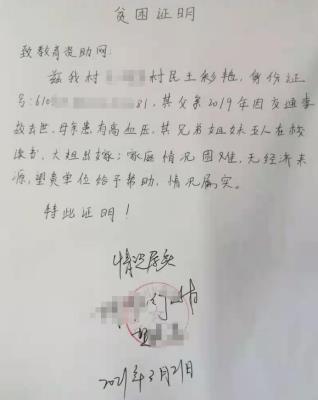 贫困证明
致教育资助网：
兹我村 村民王彩艳，身份证
号：610 81，其父亲2019年因交通事
故去世，母亲患有高血压，其兄弟姐妹五人在校
读书，大姐出嫁；家庭情况困难，无经济来
源，望贵单位给予帮助，情况属实。
特此证明！
情况属实
2021年3月21日